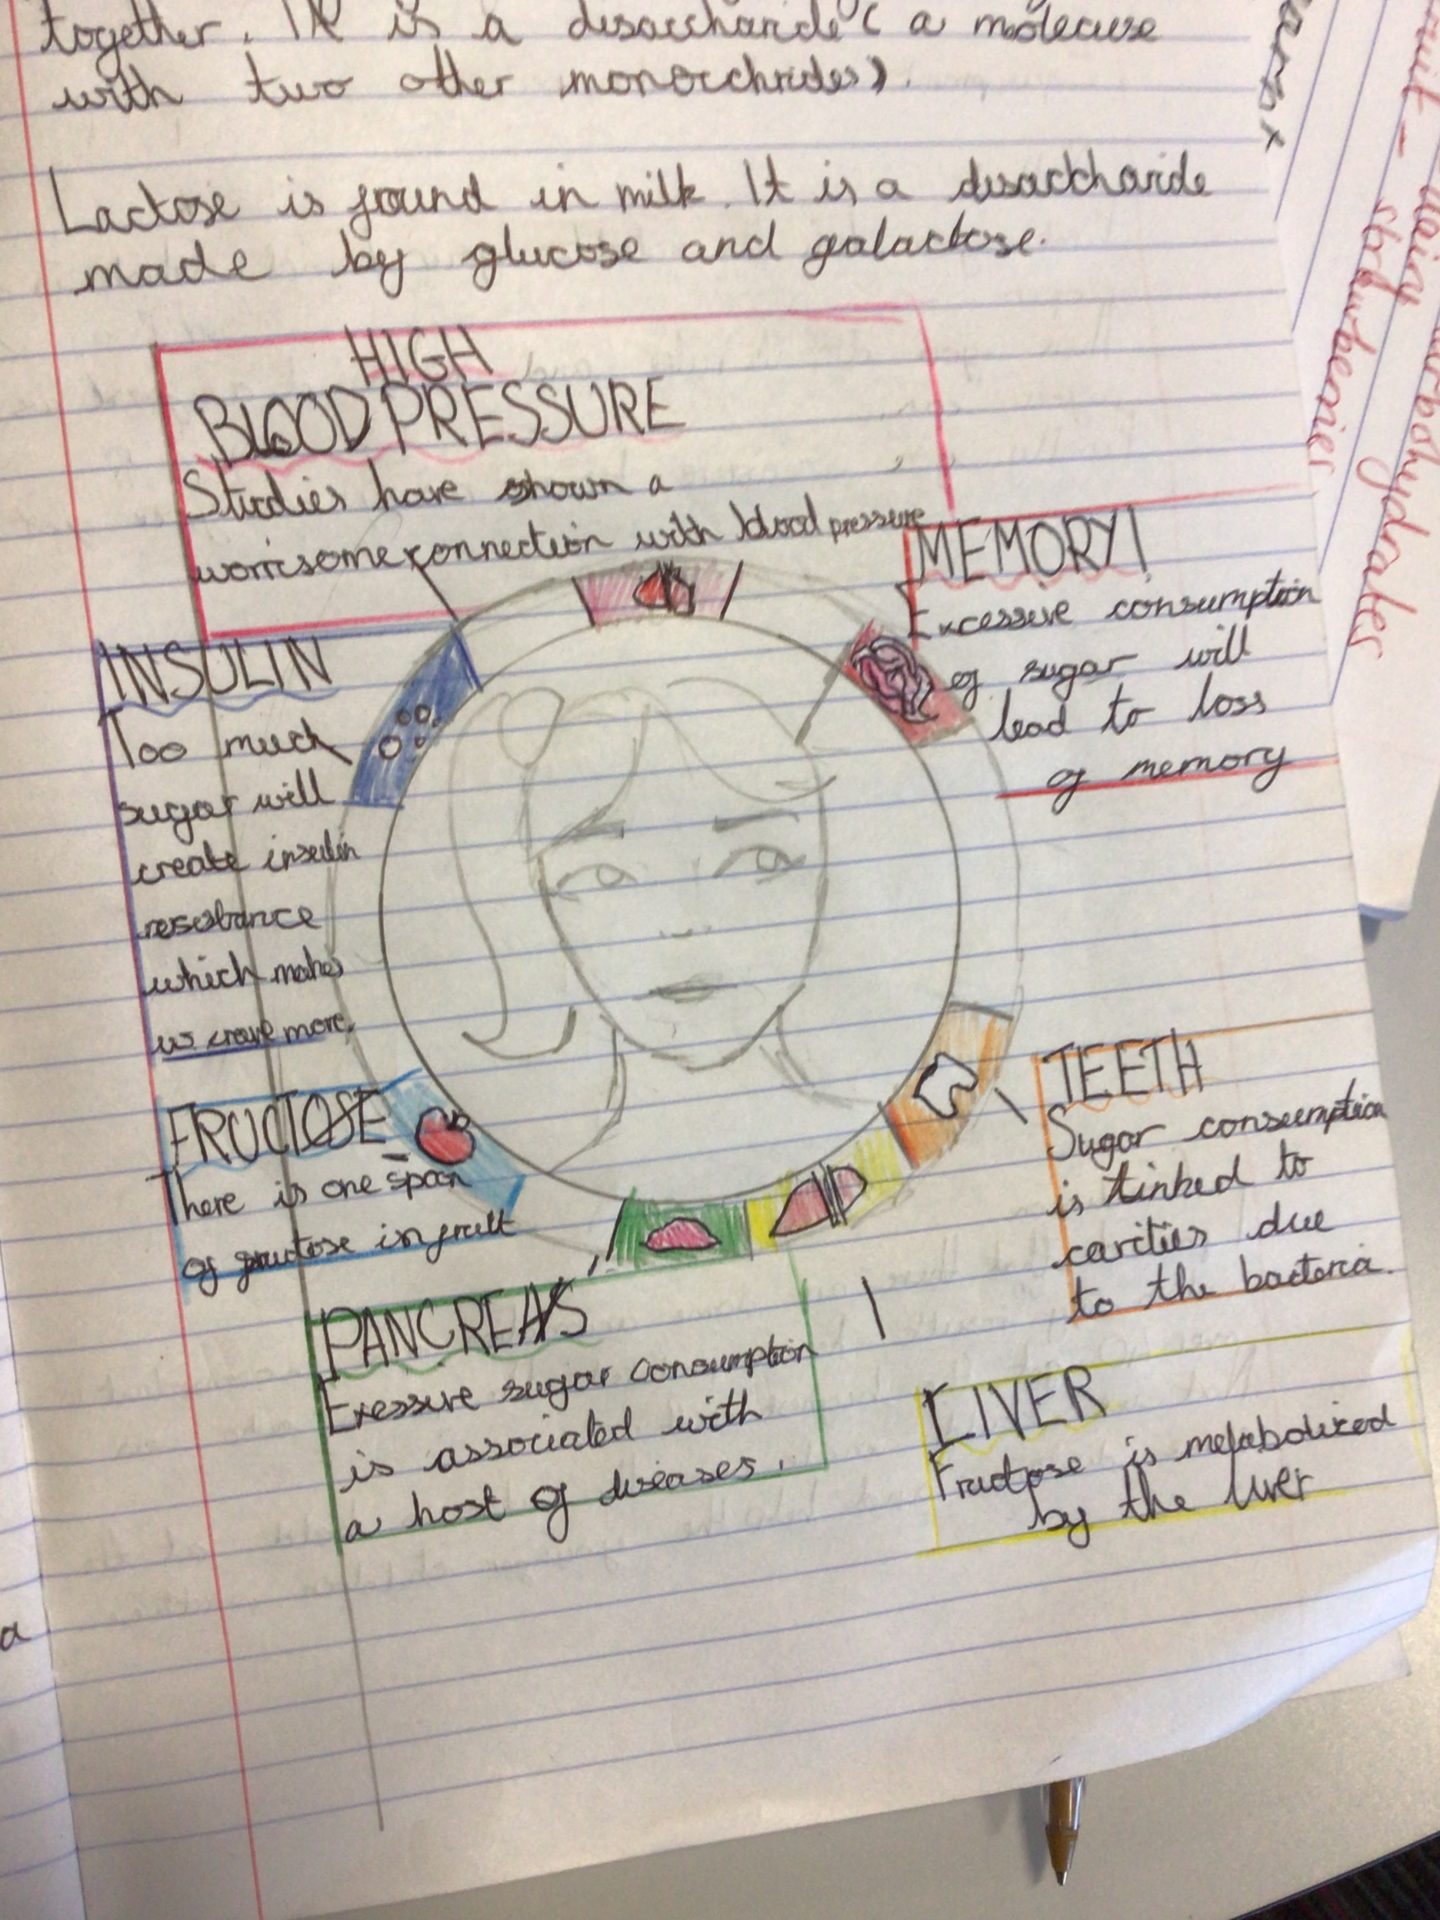 together. It is a disaccharide ( a molecuse
with two other monocchrides).
Lactose is found in milk. It is a disaccharide
made by glucose and galactose.
HIGH
BLOOD PRESSURE
Studies have shown a
worrisome connection with blood pressure
MEMORY!
Excessive consumption
of sugar will
lead to loss
of memory
INSULIN
Too much
sugar will
create insulin
resestance
which makes
us crave more.
FRUCTOSE
There is one span
of fructose in fruit
TEETH
Sugar consumption
is linked to
cavities due
to the bacteria.
PANCREAS
Exessive sugar consumption
is associated with
a host of diseases.
LIVER
Fructose is metabolized
by the liver
strawberries
carbohydrates
a